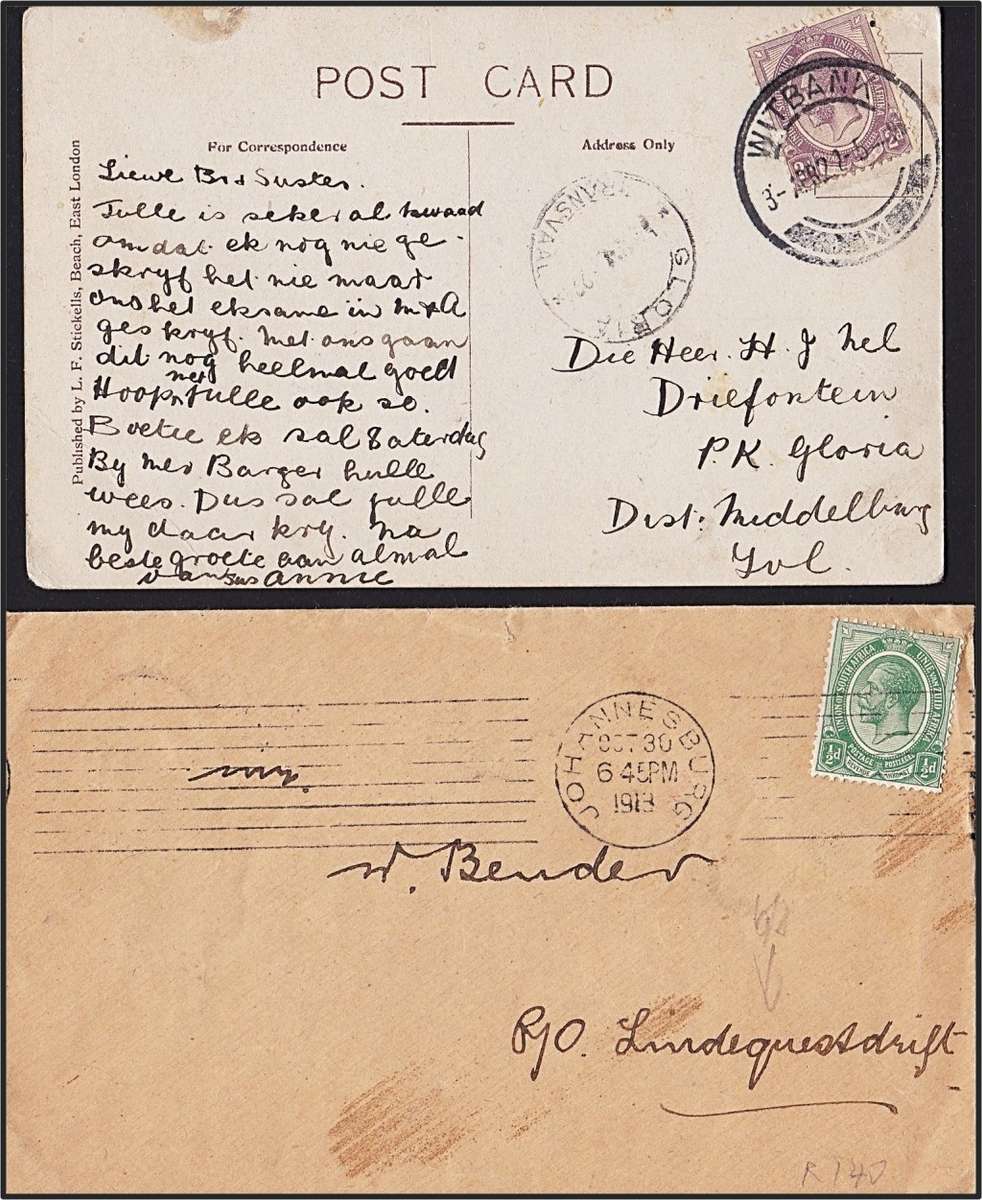 POST CARD
For Correspondence
Address Only
Published by L. F. Stickells, Beach, East London
Liewe Br & Suster.
Julle is seker al kwaad
omdat ek nog nie ge-
skryf het nie maar
ons het eksame in
geskryf. Met ons gaan
dit nog heelmal goed
Hoop met julle ook so.
Boetie ek sal Saterdag
By Mev Barger hulle
wees. Dus sal julle
my daar kry. Na
beste groete aan almal
van sus Annie
UNIE VAN ZUID AFRIKA
WITBANK
GLORIA
TRANSVAAL
Die Heer. H. J Nel
Driefontein
P.K. Gloria
Dist: Middelburg
Tvl.
UNION OF SOUTH AFRICA UNIE VAN ZUID AFRIKA
POSTAGE POSTZEGEL
½d ½d
JOHANNESBURG
OCT 30
6 45PM
1913
W. Bender
P/O. Lindequestdrift
R 140